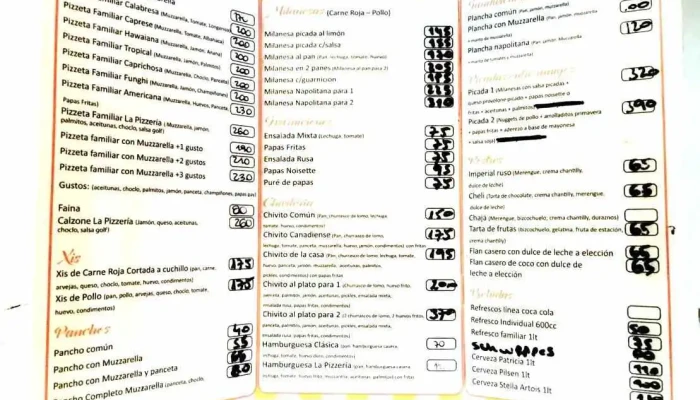 Pizzeta Familiar Calabresa (Muzzarella, Tomate, Longaniza)
Pizzeta Familiar Caprese (Muzzarella, Tomate, Albahaca) 200
Pizzeta Familiar Hawaiana (Muzzarella, Jamón, Ananá) 200
Pizzeta Familiar Tropical (Muzzarella, Jamón, Palmitos) 200
Pizzeta Familiar Caprichosa (Muzzarella, Choclo, Panceta) 200
Pizzeta Familiar Funghi (Muzzarella, Jamón, Champiñones) 200
Pizzeta Familiar Americana (Muzzarella, Huevos, Panceta, 230
Papas Fritas)
Pizzeta Familiar La Pizzería (Muzzarella, jamón, 260
palmitos, aceitunas, choclo, salsa golf)
Pizzeta familiar con Muzzarella +1 gusto 190
Pizzeta familiar con Muzzarella +2 gustos 210
Pizzeta familiar con Muzzarella +3 gustos 230
Gustos: (aceitunas, choclo, palmitos, jamón, panceta, champiñones, papas pai)
Faina 80
Calzone La Pizzería (Jamón, queso, aceitunas, 260
choclo, salsa golf)
Xis
Xis de Carne Roja Cortada a cuchillo (pan, carne, 175
arvejas, queso, choclo, tomate, huevo, condimentos)
Xis de Pollo (pan, pollo, arvejas, queso, choclo, tomate, 175
huevo, condimentos)
Panchos
Pancho común 40
Pancho con Muzzarella 55
Pancho con Muzzarella y panceta
Pancho Completo Muzzarella (panceta, choclo,
Milanesas (Carne Roja – Pollo)
Milanesa picada al limón 145
Milanesa picada c/salsa 155
Milanesa al pan (Pan, lechuga, tomate, huevo)
Milanesa en 2 panes (Milanesa al pan para 2)
Milanesa c/guarnicion
Milanesa Napolitana para 1
Milanesa Napolitana para 2
Guarniciones
Ensalada Mixta (Lechuga, tomate) 75
Papas Fritas 75
Ensalada Rusa 75
Papas Noisette 95
Puré de papas 75
Chivitería
Chivito Común (Pan, churrasco de lomo, lechuga, 150
tomate, huevo, condimentos)
Chivito Canadiense (Pan, churrasco de lomo, 175
lechuga, tomate, panceta, muzzarella, huevo, jamón, condimentos) con fritas
Chivito de la casa (Pan, churrasco de lomo, lechuga, tomate, 195
huevo, panceta, jamón, muzzarella, aceitunas, palmitos,
pickles, condimentos) con papas fritas
Chivito al plato para 1 (Churrasco de lomo, huevo frito, 200
panceta, palmitos, jamón, aceitunas, pickles, ensalada mixta,
ensalada rusa, papas fritas, condimentos)
Chivito al plato para 2 (2 churrascos de lomo, 2 huevos fritos, 370
panceta, palmitos, jamón, aceitunas, pickles, ensalada mixta,
ensalada rusa, papas fritas, condimentos)
Hamburguesa Clásica (pan, hamburguesa casera, 70
lechuga, tomate, huevo duro, condimentos)
Hamburguesa La Pizzería (pan, hamburguesa casera,
lechuga, tomate, huevo frito, muzzarella, aceitunas, palmitos) con fritas
Plancha común (Pan, jamón, muzzarella)
Plancha con Muzzarella (Pan, jamón, muzzarella 120
+ manto de muzzarella)
Plancha napolitana (Pan, jamón, Muzzarella
+ manto de tomate y muzzarella)
Picada 1 (Milanesas con salsa picadas + 320
queso provolone picado + papas noisette o
fritas + aceitunas + palmitos
Picada 2 (Nuggets de pollo + anelladitos primavera 390
+ papas fritas + aderezo a base de mayonesa
+ salsa soja)
Postres
Imperial ruso (Merengue, crema chantilly, 65
dulce de leche)
Cheli (Torta de chocolate, crema chantilly, merengue, 65
dulce de leche)
Chajá (Merengue, bizcochuelo, crema chantilly, duraznos)
Tarta de frutas (bizcochuelo, gelatina, fruta de estación, 65
crema chantilly)
Flan casero con dulce de leche a elección 65
Flan casero de coco con dulce de 65
leche a elección
Bebidas
Refrescos línea coca cola
Refresco Individual 600cc 50
Refresco familiar 1lt 75
SCHWEPPES 80
Cerveza Patricia 1lt 110
Cerveza Pilsen 1lt
Cerveza Stella Artois 1lt